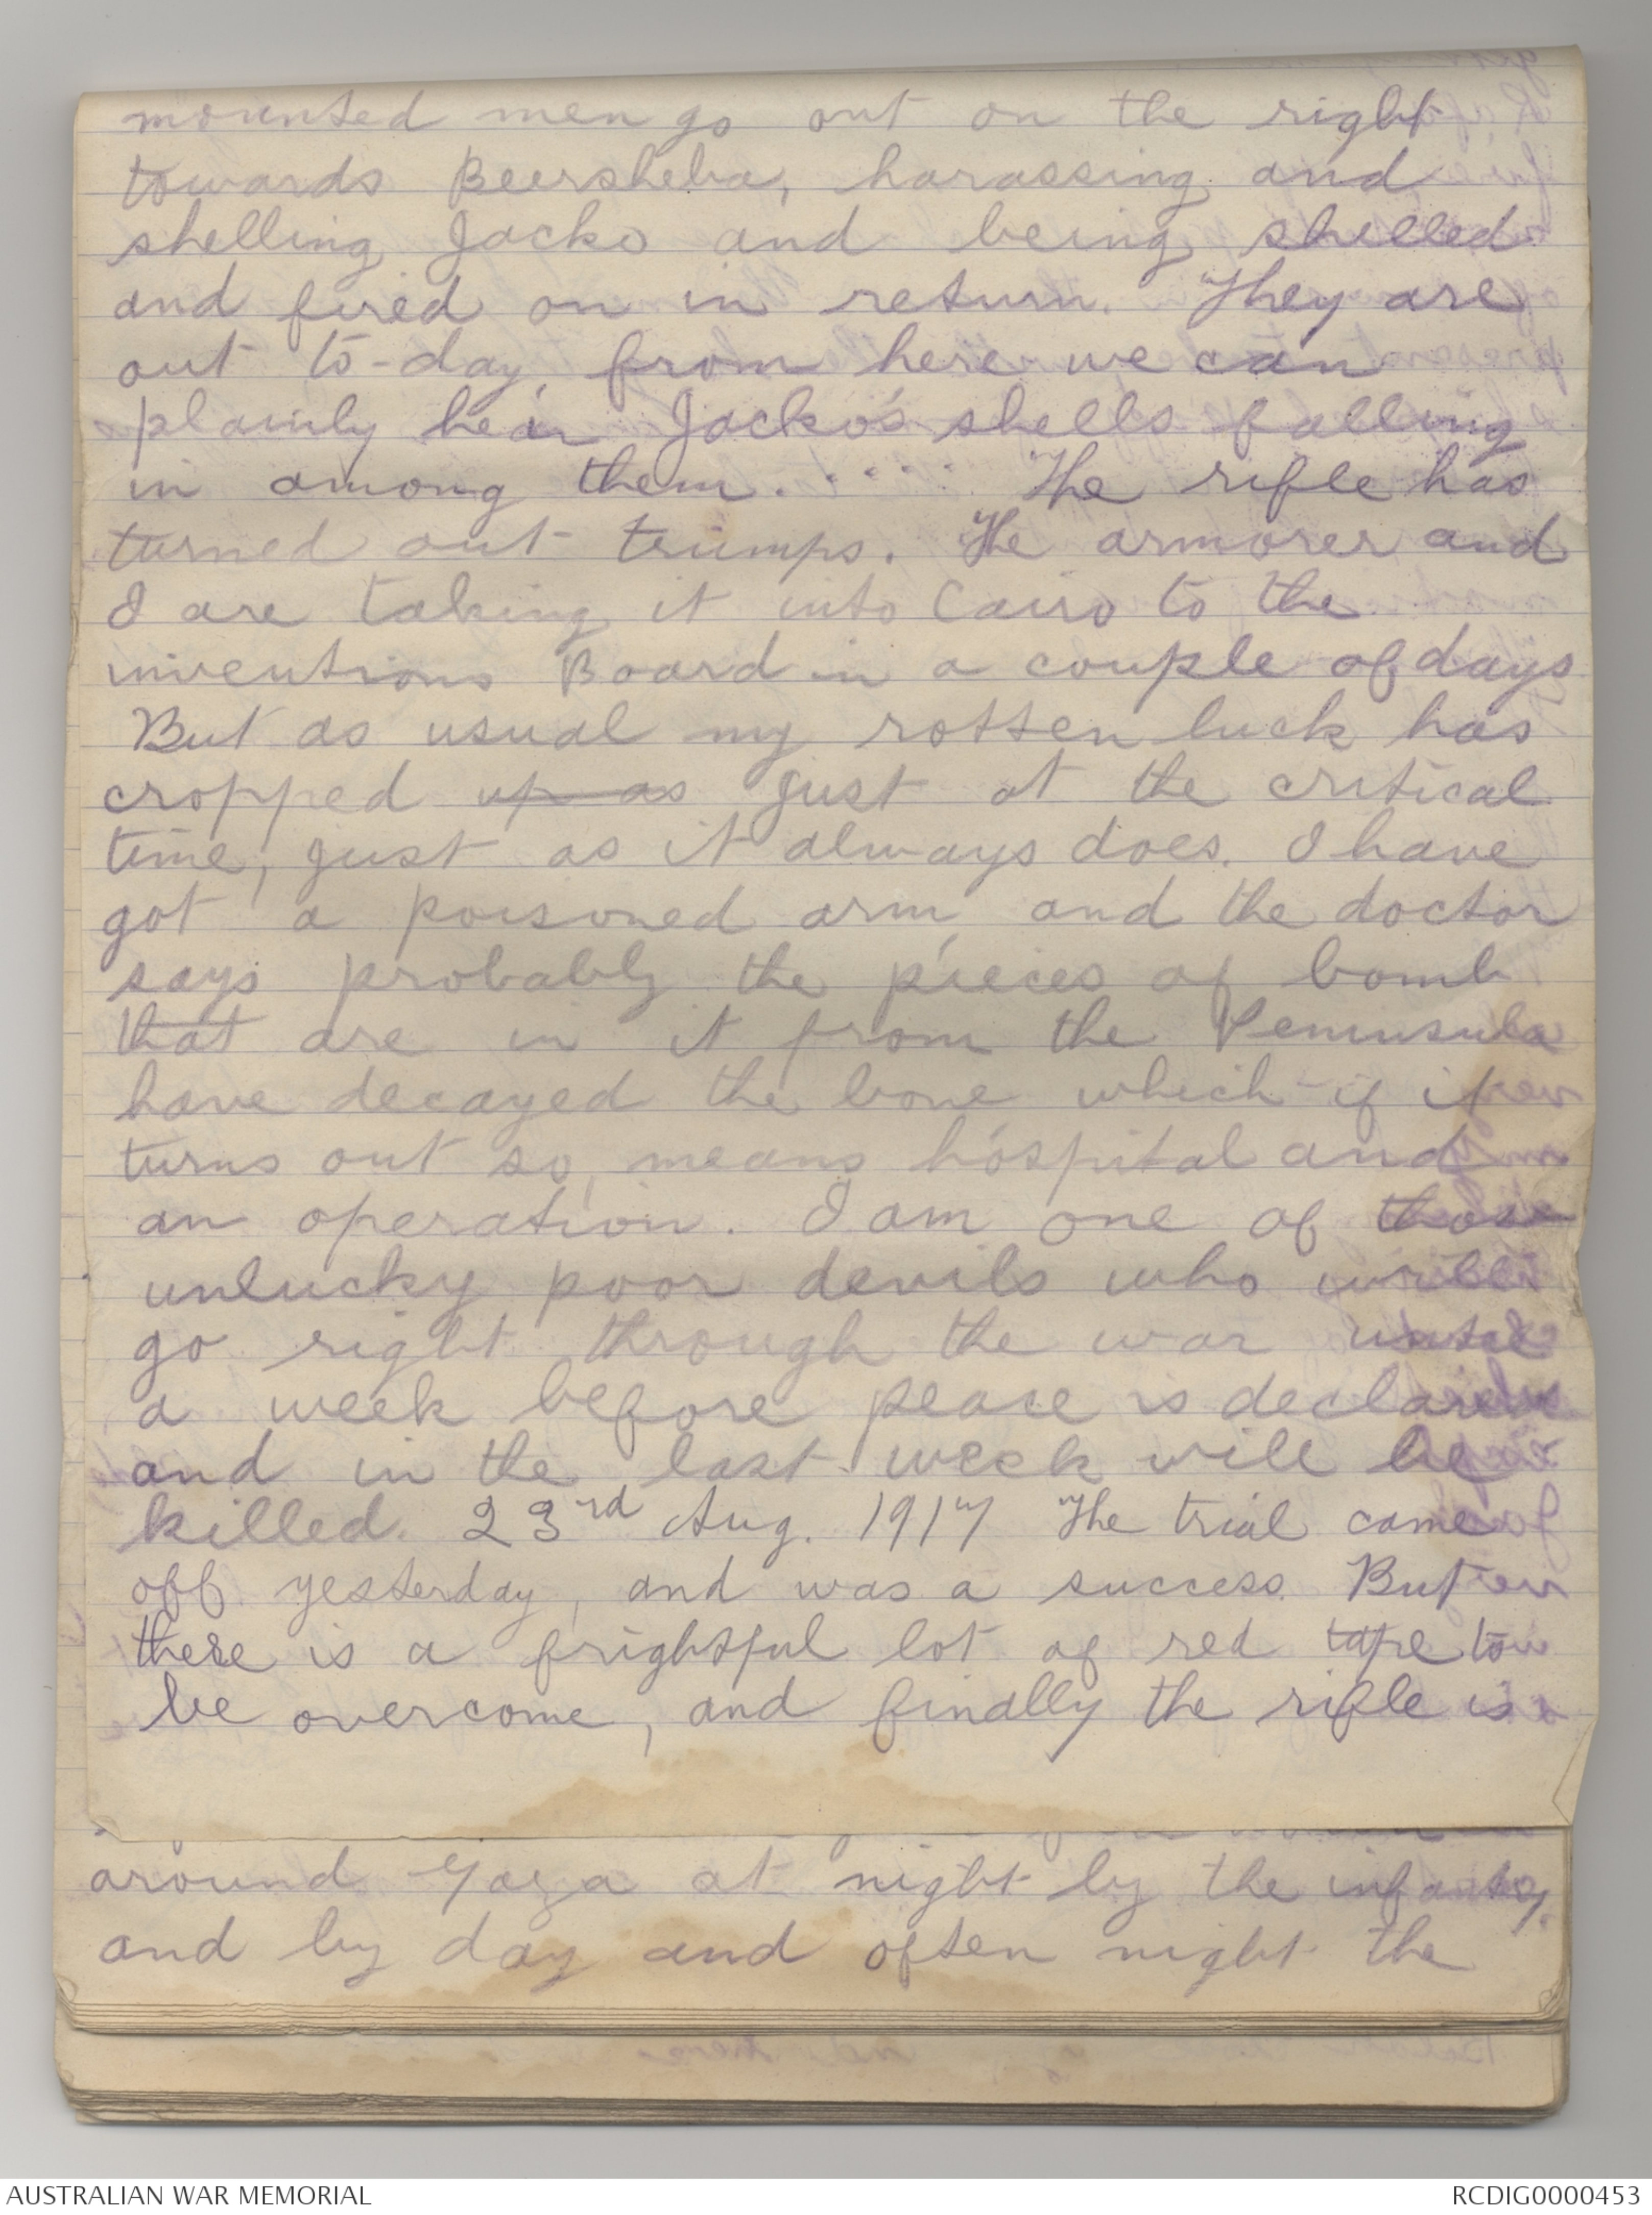 mounted men go out on the right
towards Beersheba, harassing and
shelling Jacko and being shelled
and fired on in return. They are
out to-day, from here we can
plainly hear Jacko's shells falling
in among them. . . . . . The rifle has
turned out trumps. The armorer and
I are taking it into Cairo to the
inventions Board in a couple of days
But as usual my rotten luck has
cropped up as just at the critical
time, just as it always does. I have
got a poisoned arm, and the doctor
says probably the pieces of bomb
that are in it from the Peninsula
have decayed the bone which if it
turns out so, means hospital and
an operation. I am one of those
unlucky poor devils who will
go right through the war until
a week before peace is declared
and in the last week will be
killed. 23rd Aug. 1917 The trial came
off yesterday, and was a success. But
there is a frightful lot of red tape to
be overcome, and finally the rifle is
around Gaza at night by the infantry.
and by day and often night the
AUSTRALIAN WAR MEMORIAL
RCDIG0000453